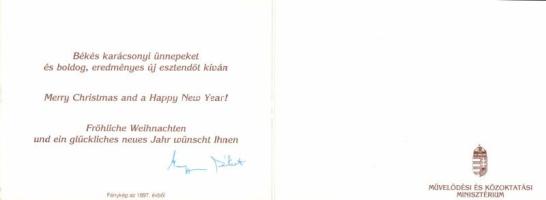 Békés karácsonyi ünnepeket
és boldog, eredményes új esztendőt kíván
Merry Christmas and a Happy New Year!
Fröhliche Weihnachten
und ein glückliches neues Jahr wünscht Ihnen
Fénykép az 1897. évből
MŰVELŐDÉSI ÉS KÖZOKTATÁSI
MINISZTÉRIUM